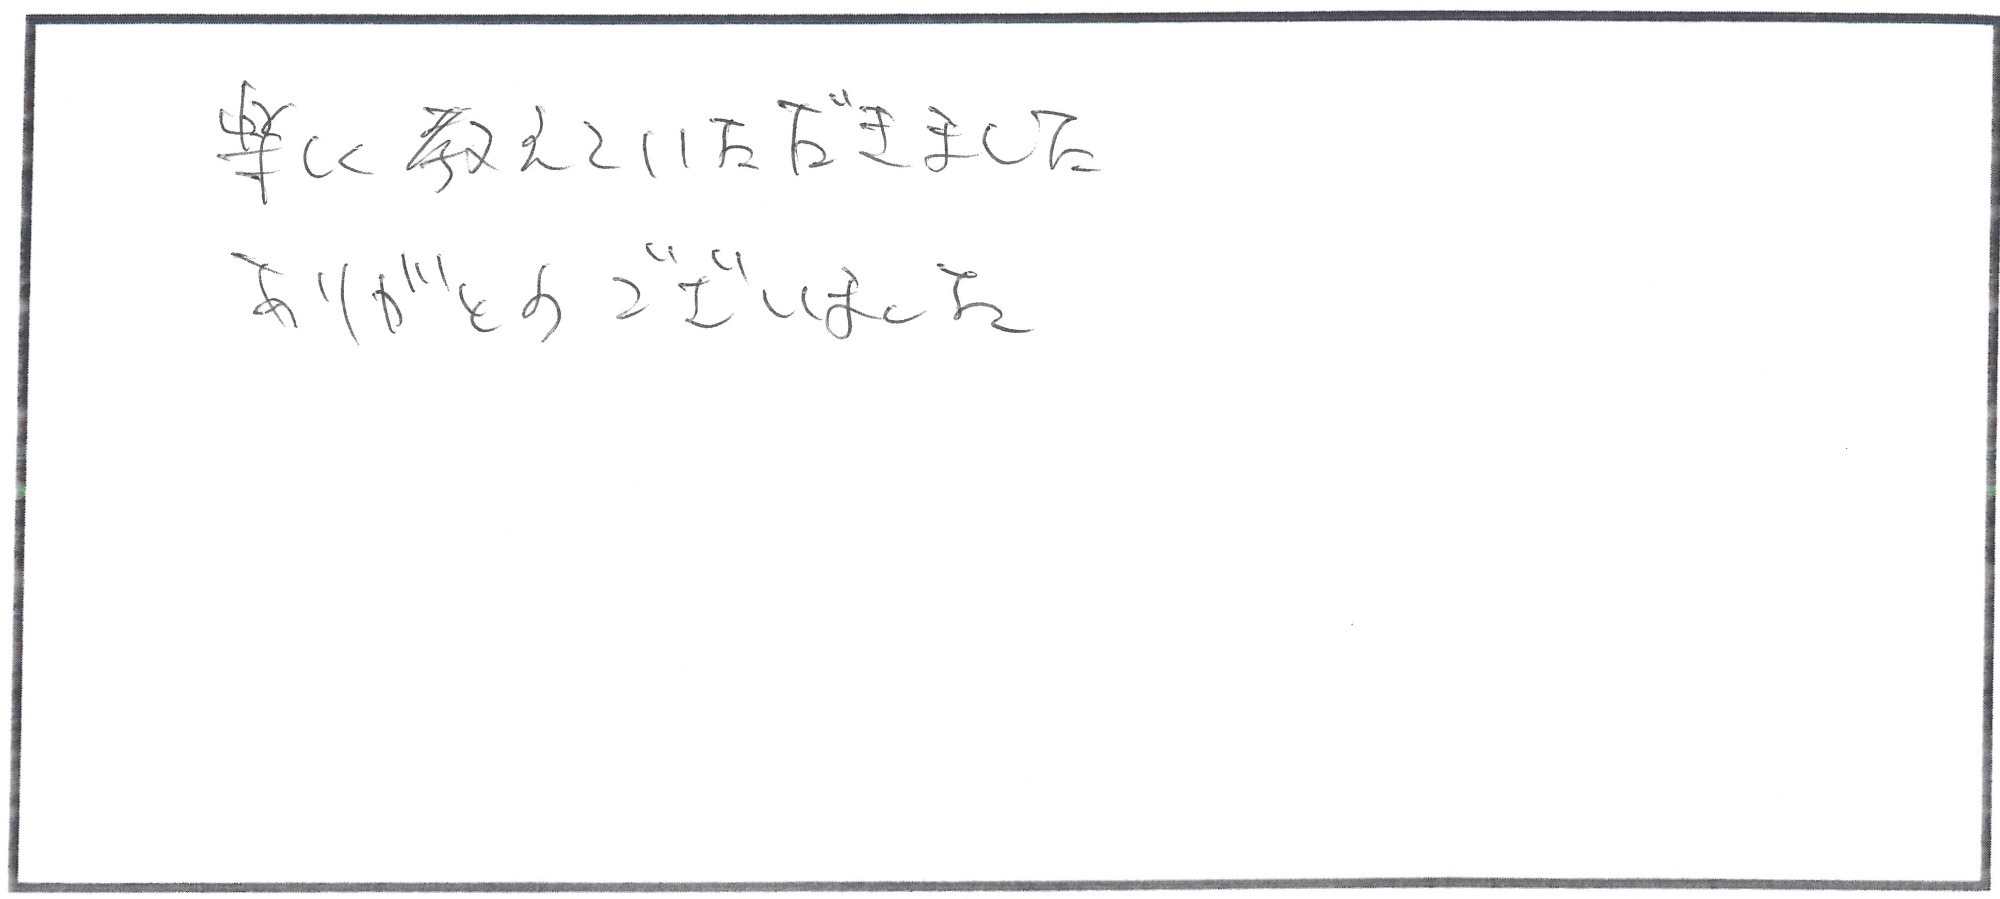 楽しく教えていただきました
ありがとうございました